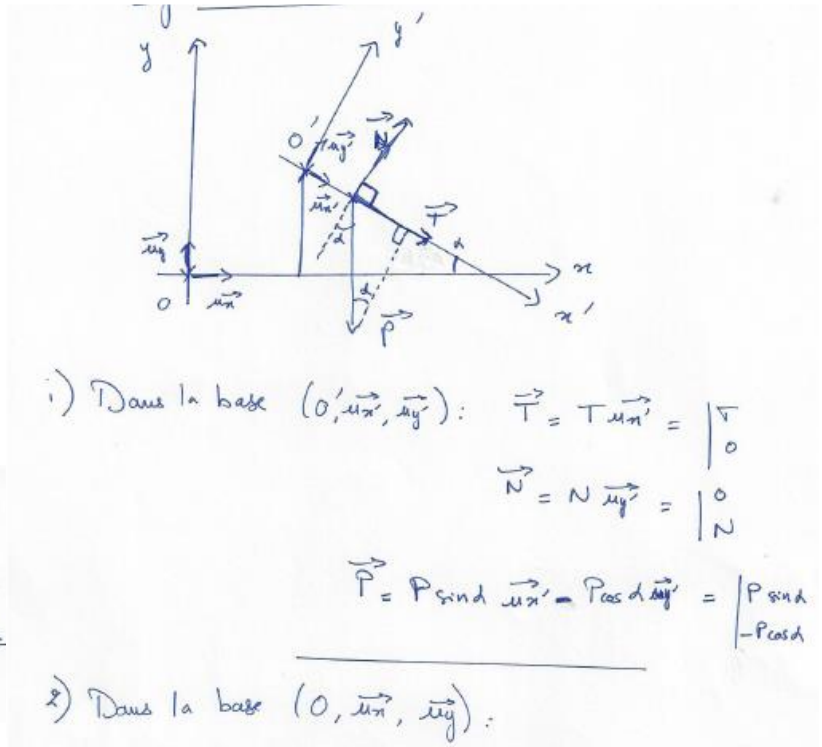 y
y'
O'
→uy'
→N
→ux'
→T
α
α
α
→uy
O
→ux
→P
x
x'
1) Dans la base (O', →ux', →uy') : →T = T →ux' = | T
0
→N = N →uy' = | 0
N
→P = P sinα →ux' - P cosα →uy' = | P sinα
-P cosα
2) Dans la base (O, →ux, →uy) :